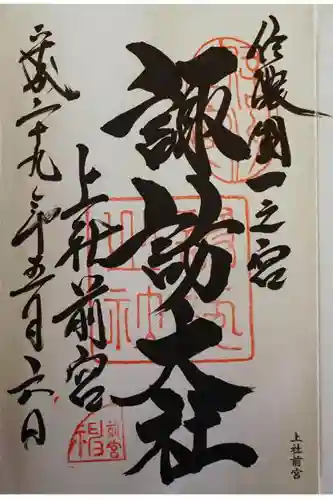 信濃國一之宮
諏訪大社
上社前宮
平成二十九年五月六日
上社前宮
前宮